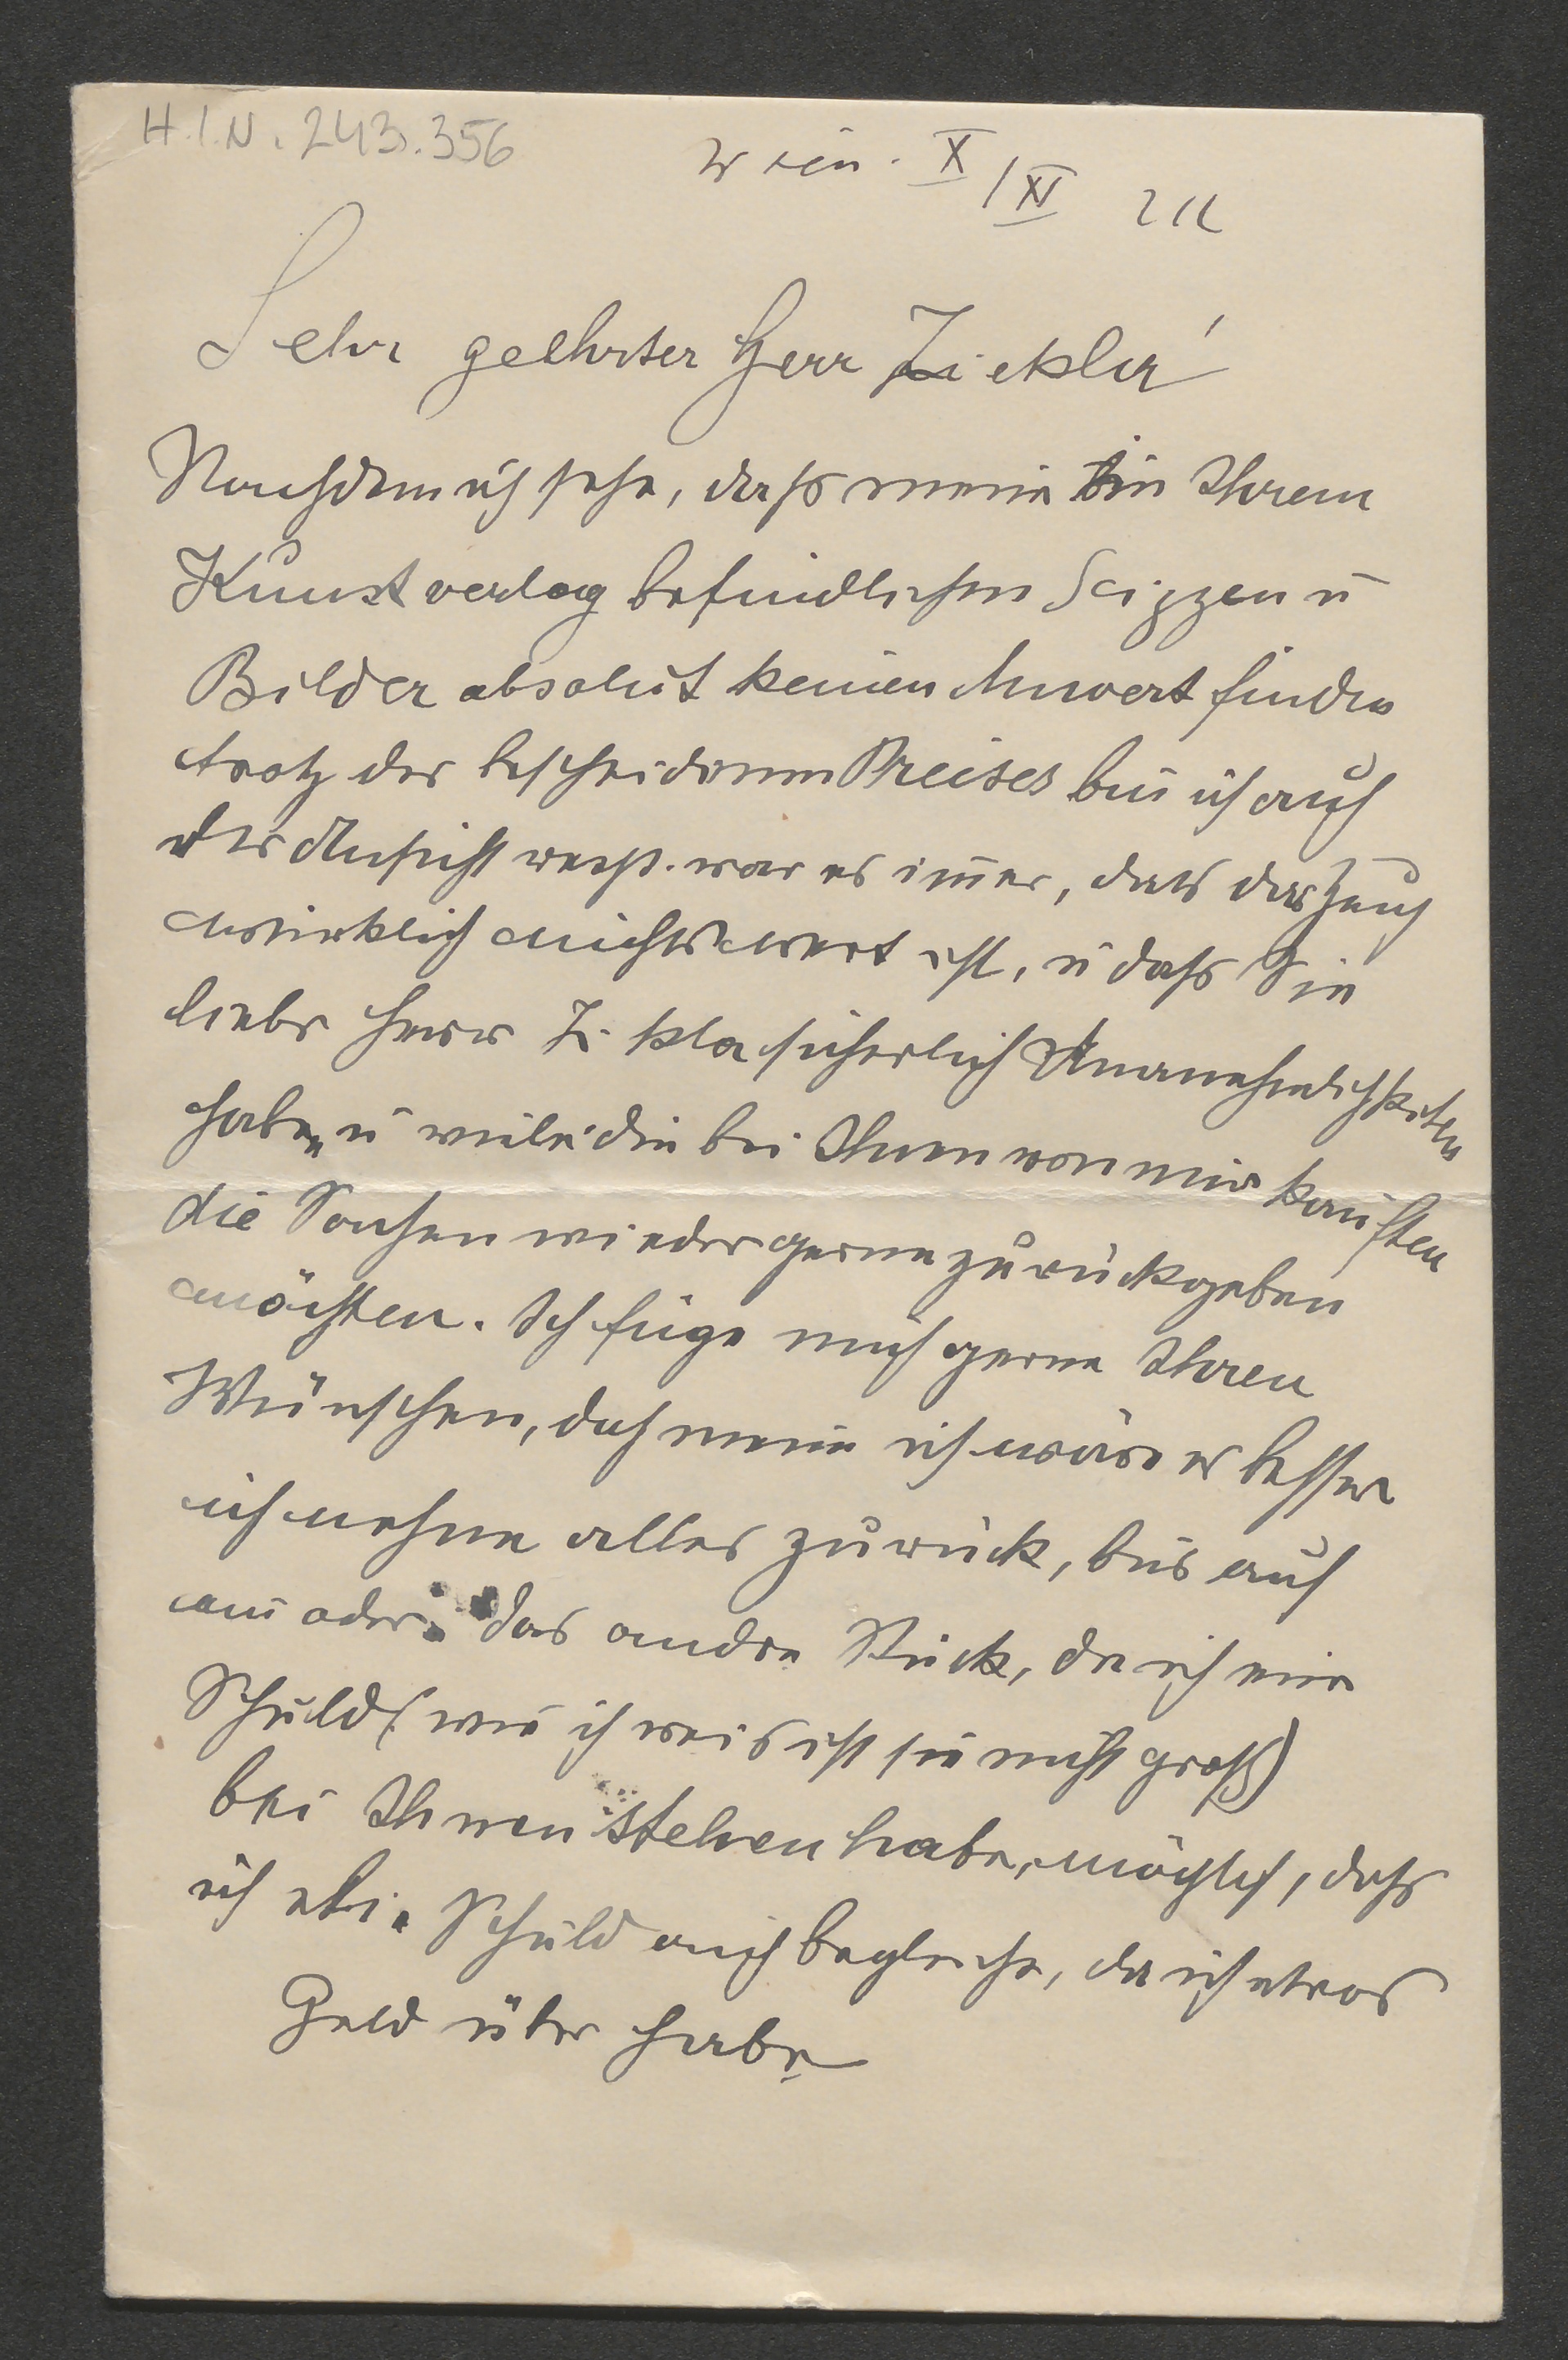 H.I.N. 243.356
Wien. X/XI 211
Sehr geehrter Herr Zickler!
Nachdem ich sehe, daß meine in Ihrem
Kunstverlag befindlichen Scizzen u
Bilder absolut keinen Anwert finden
trotz des bescheidenen Preises bin ich auch
der Ansicht resp. war es immer, dass das Zeug
wirklich nichts wert ist, u daß Sie
lieber Herr Zikler sicherlich Unannehmlichkeiten
haben u viele die bei Ihnen von mir kauften
die Sachen wieder gerne zurückgeben
möchten. Ich füge mich gerne Ihren
Wünschen, doch meine ich wäre es besser
ich nehme alles zurück, bis auf
ein oder das andre Stück, da ich eine
Schuld (wie ich weis ist sie nicht groß)
bei Ihnen stehen habe, möglich, daß
ich die Schuld auch begleiche, da ich etwas
Geld über habe